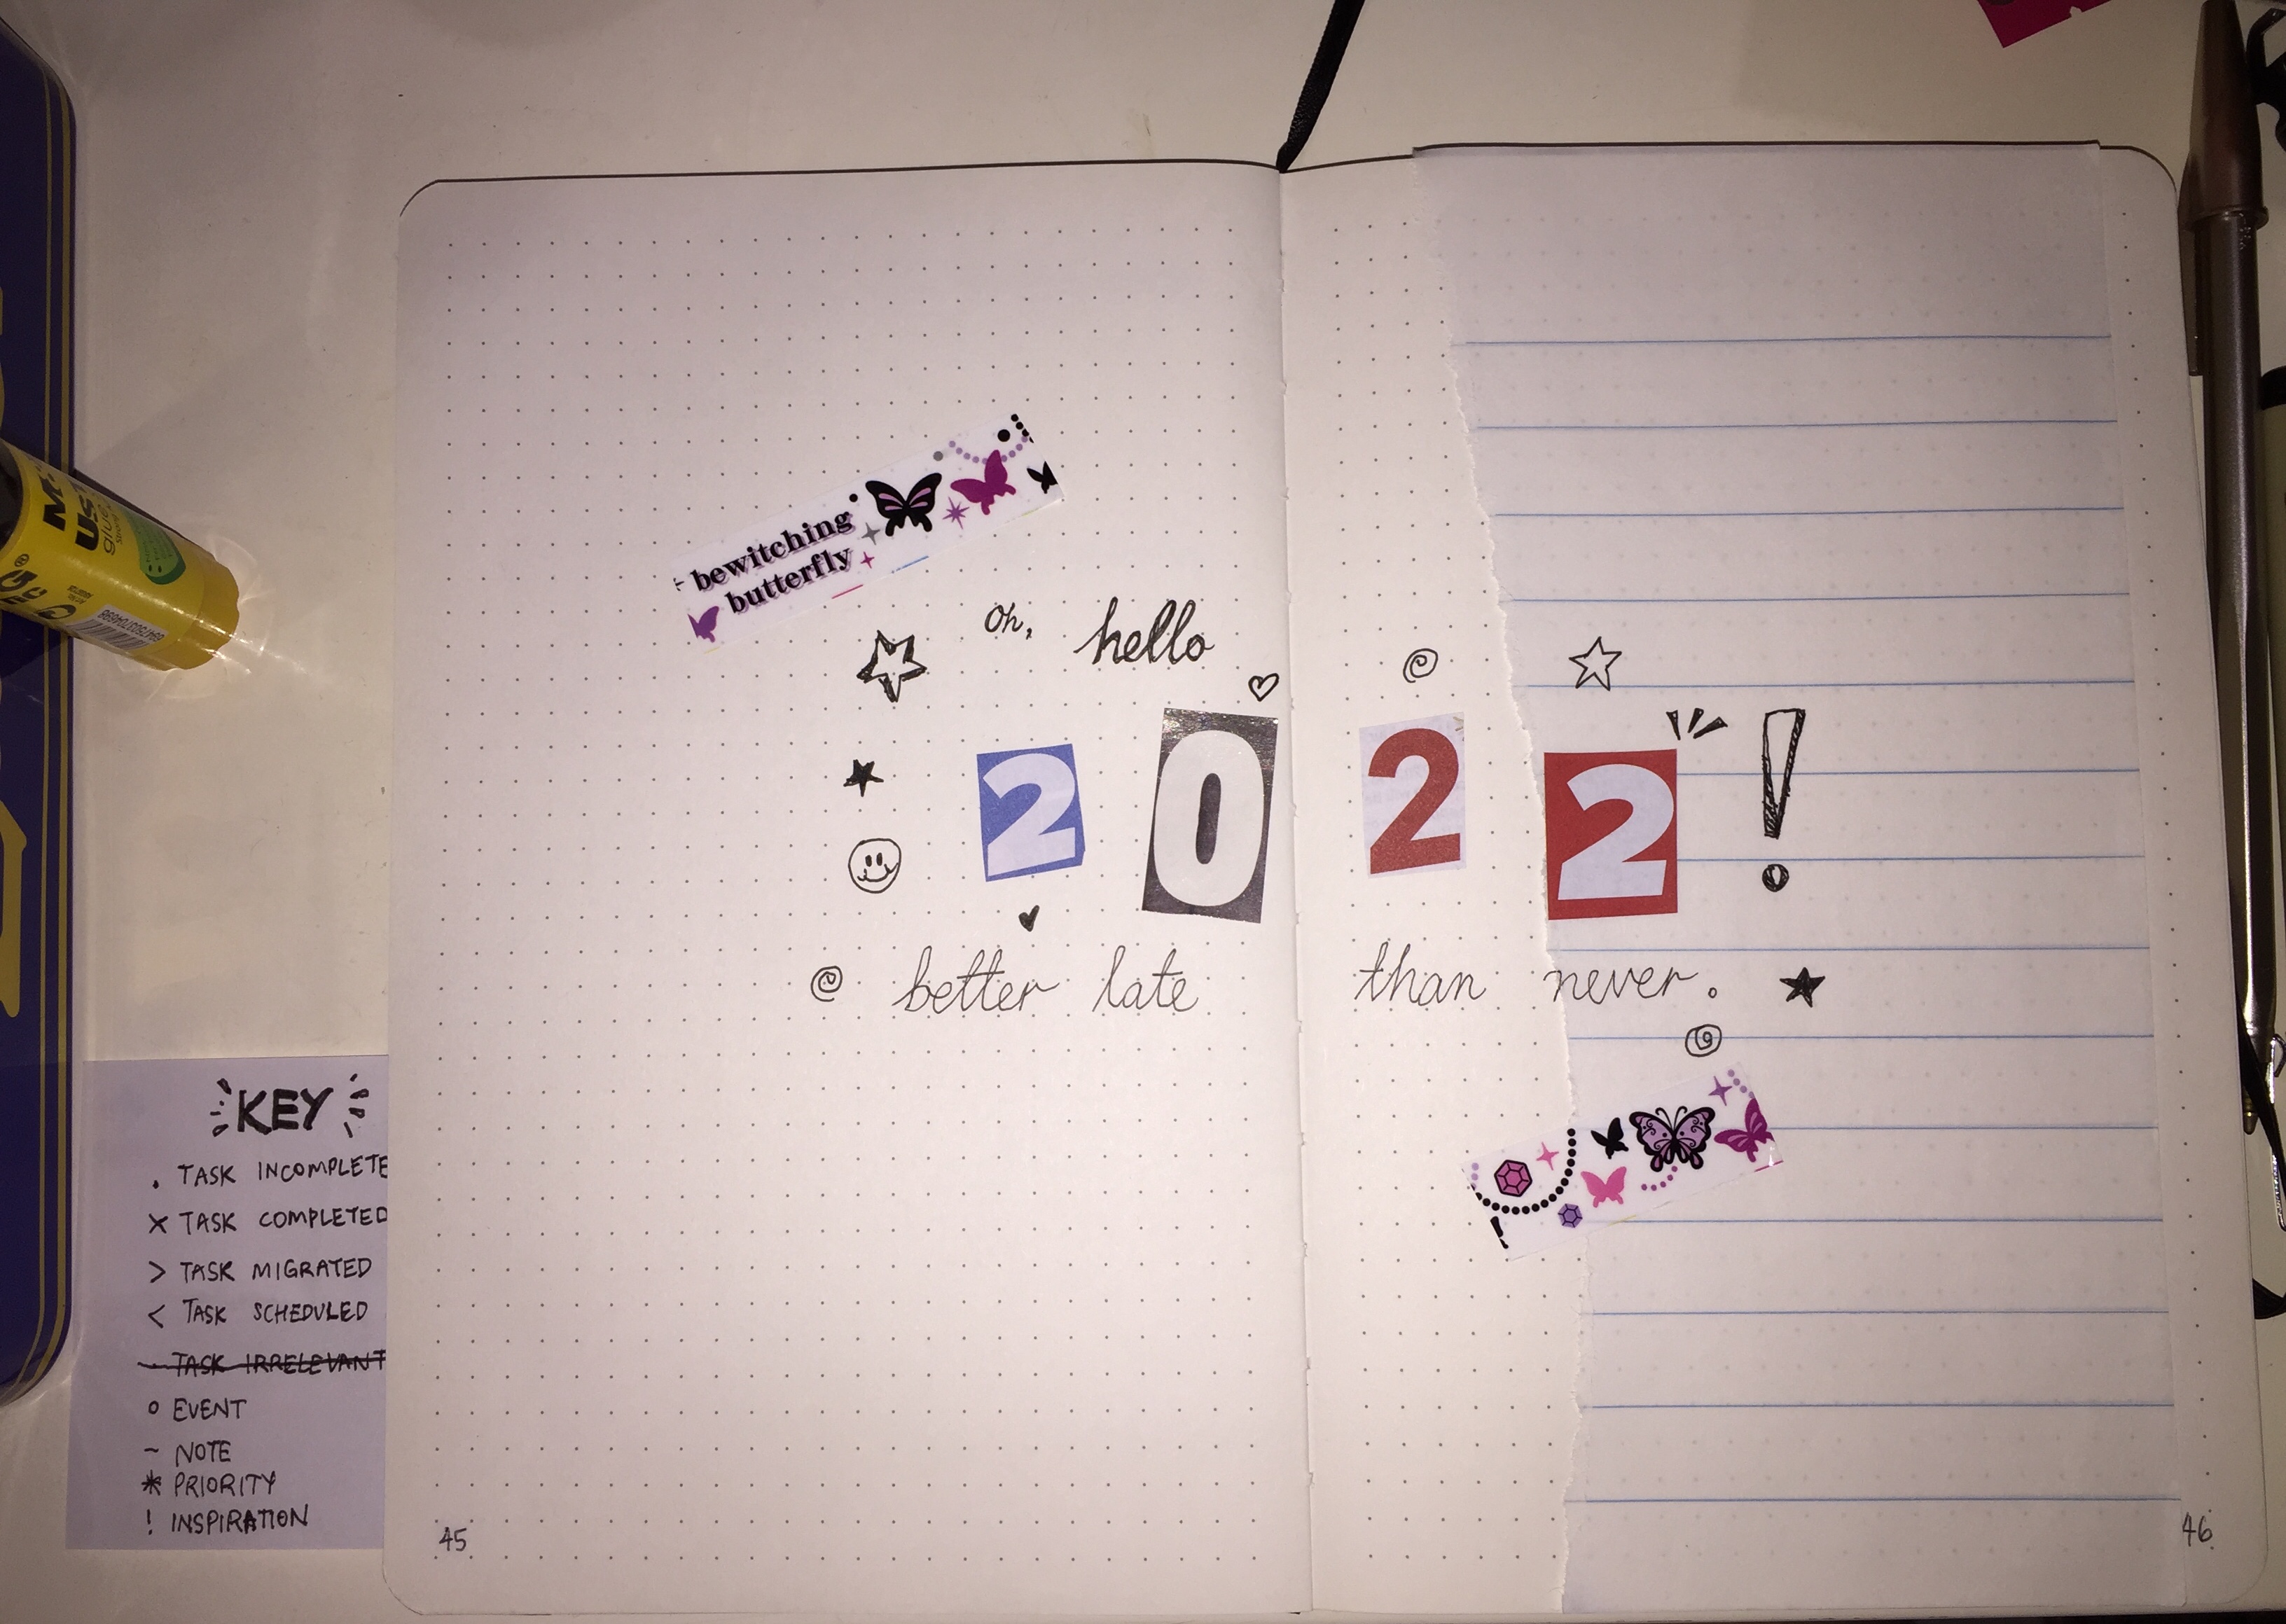 bewitching
butterfly
oh, hello
2022!
better late than never.
KEY
. TASK INCOMPLETE
x TASK COMPLETED
> TASK MIGRATED
< TASK SCHEDULED
. TASK IRRELEVANT
o EVENT
- NOTE
* PRIORITY
! INSPIRATION
45
46
glue
6947503704698